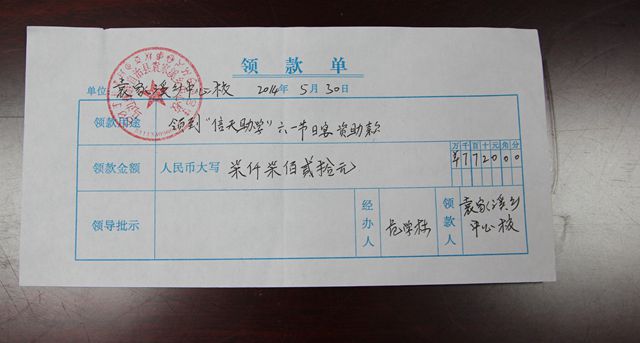 领款单
单位：袁家溪乡中心校 2014年5月30日
领款用途 领到"信天助学"六一节日客资助款
万千百十元角分
领款金额 人民币大写 柒仟柒佰贰拾元 ¥772000
领导批示 经办人 领款人 袁家溪乡
中心校